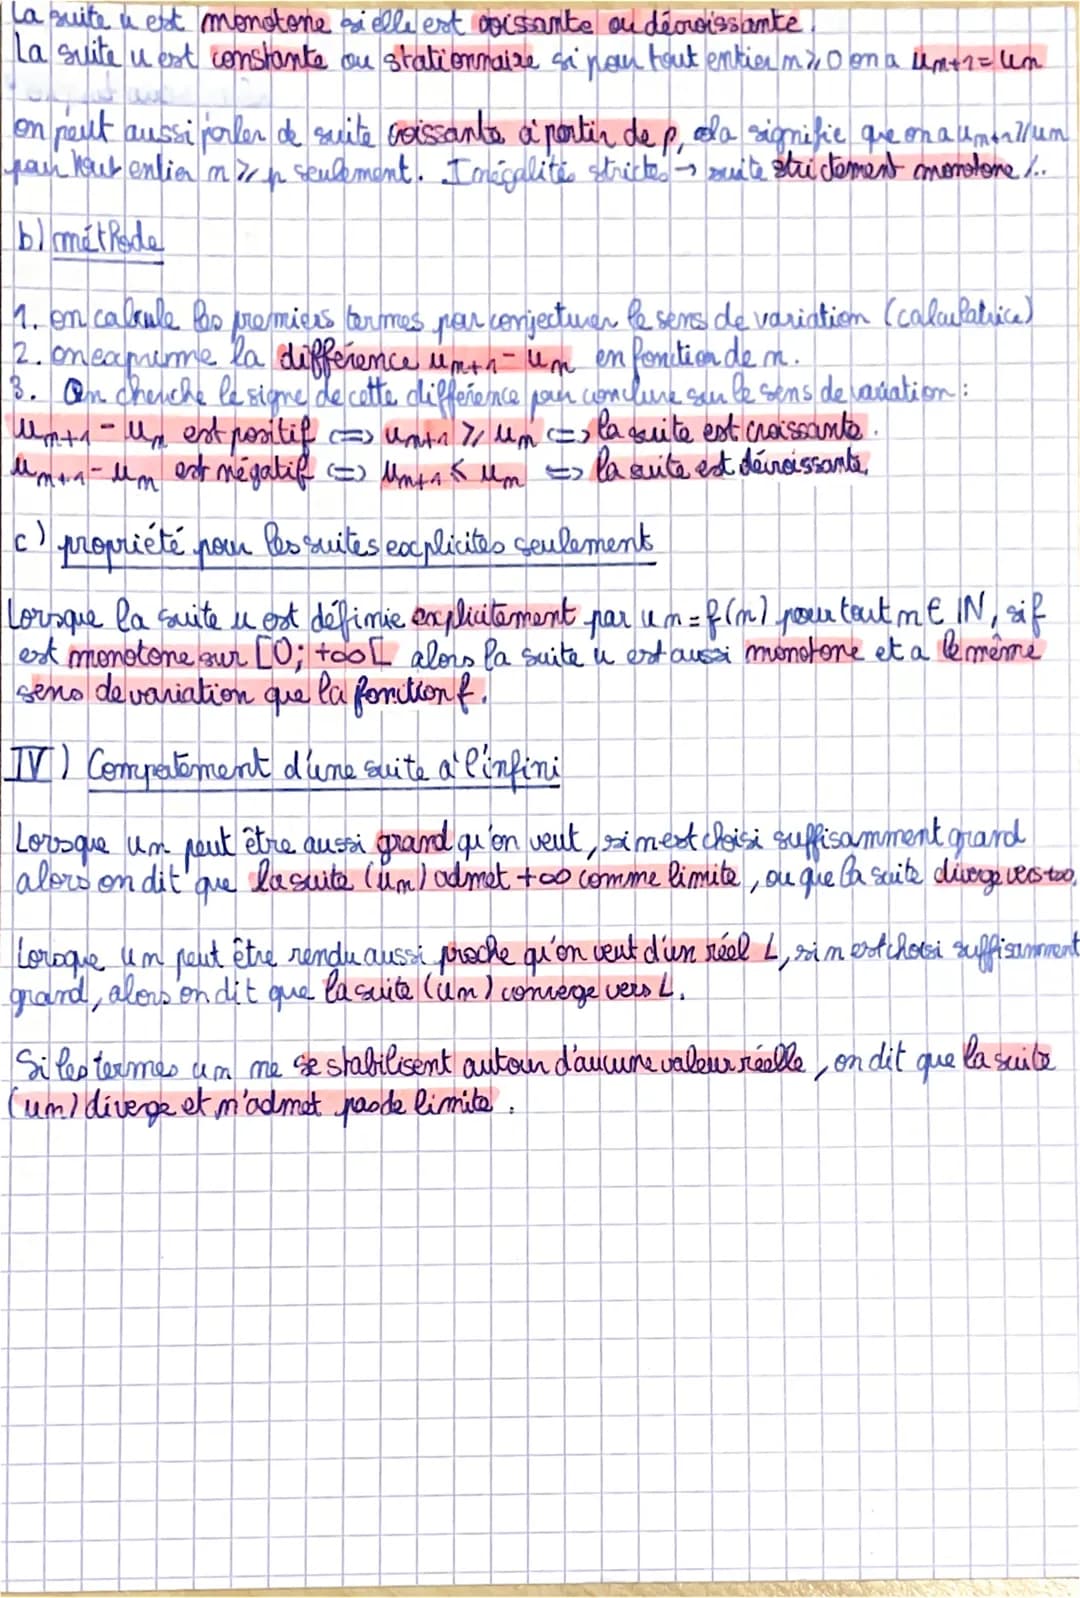 La suite u est monotone si elle est croissante ou décroissante.
La suite u est constante ou stationnaire si pour tout entier n ⩾ 0 on a un+1 = un
on peut aussi parler de suite croissante à partir de p, cela signifie que on a un+1 ⩾ un
pour tout entier n ⩾ p seulement. Inégalités strictes → suite strictement monotone /..
b) méthode
1. on calcule les premiers termes par conjecturer le sens de variation (calculatrice)
2. on exprime la différence un+1 - un en fonction de n.
3. On cherche le signe de cette différence pour conclure sur le sens de variation :
un+1 - un est positif <=> un+1 ⩾ un <=> la suite est croissante.
un+1 - un est négatif <=> un+1 ⩽ un <=> la suite est décroissante.
c) propriété pour les suites explicites seulement
Lorsque la suite u est définie explicitement par un = f(n) pour tout n ∈ IN, si f
est monotone sur [0; +∞[ alors la suite u est aussi monotone et a le même
sens de variation que la fonction f.
IV) Comportement d'une suite à l'infini
Lorsque un peut être aussi grand qu'on veut, si n est choisi suffisamment grand
alors on dit que la suite (un) admet +∞ comme limite, ou que la suite diverge vers +∞.
Lorsque un peut être rendu aussi proche qu'on veut d'un réel L, si n est choisi suffisamment
grand, alors on dit que la suite (un) converge vers L.
Si les termes un ne se stabilisent autour d'aucune valeur réelle, on dit que la suite
(un) diverge et n'admet pas de limite.